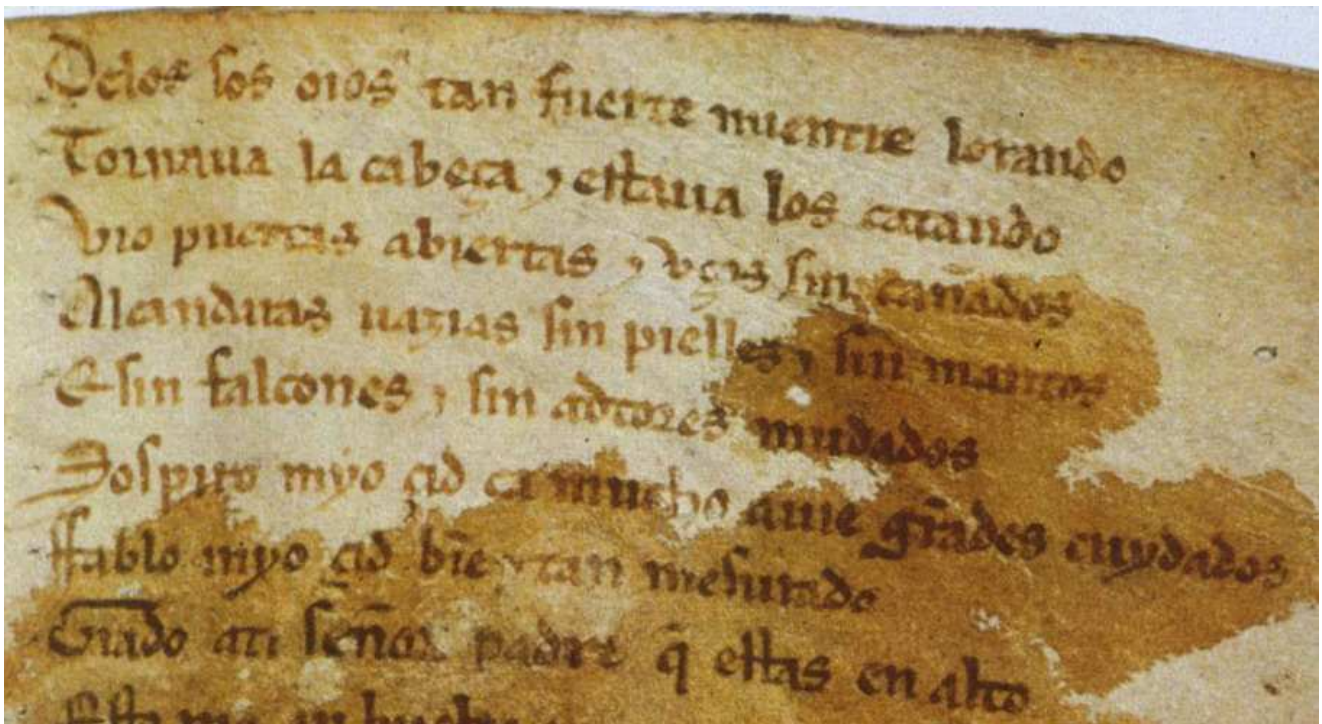 Delos sos oios tan fuerte mientre lorando
Tornaua la cabeça ⁊ estaua los catando
Vio puertas abiertas ⁊ vços sin cañados
Alcandaras uazias sin pielles ⁊ sin mantos
E sin falcones ⁊ sin adtores mudados
Sospiro myo çid ca mucho auie grãdes cuydados
ffablo myo çid bñe ⁊ tan mesurado
Grado ati señor padre q̃ estas en alto